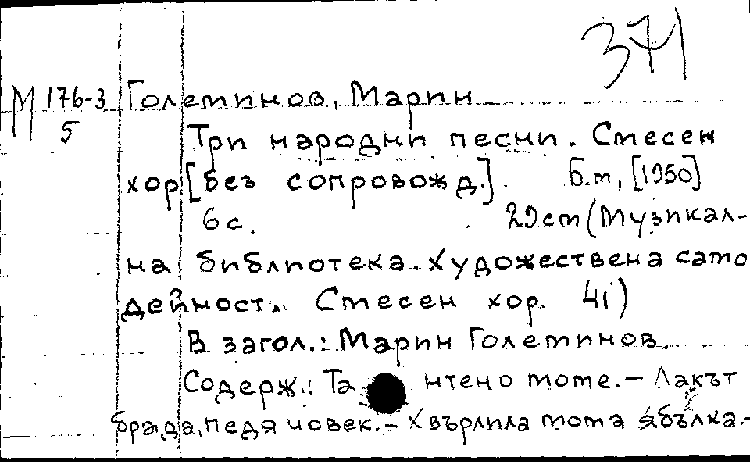 371
М 176-3 Големинов, Марин
5 Три народни песни. Смесен
хор [без сопровожд.]. Б.м, [1950]
6 с. 29 cm (Музикал-
на библиотека. Художествена само
дейност. Смесен хор. 41)
В загол.: Марин Големинов.
Содерж.: Та нчено моме. – Лакът
брада, педя човек. – Хвърлила мома ябълка. –